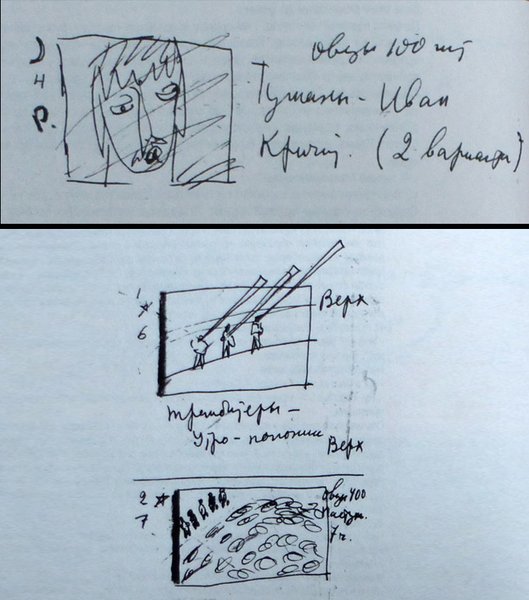 Э
Н
Р.
овцы 100 шт
Туманы - Иван
Кричит. (2 варианта)
1
6
Верх
трембитеры -
Утро - полонина
Верх
2
7
овцы 400
пастух.
7 ч.